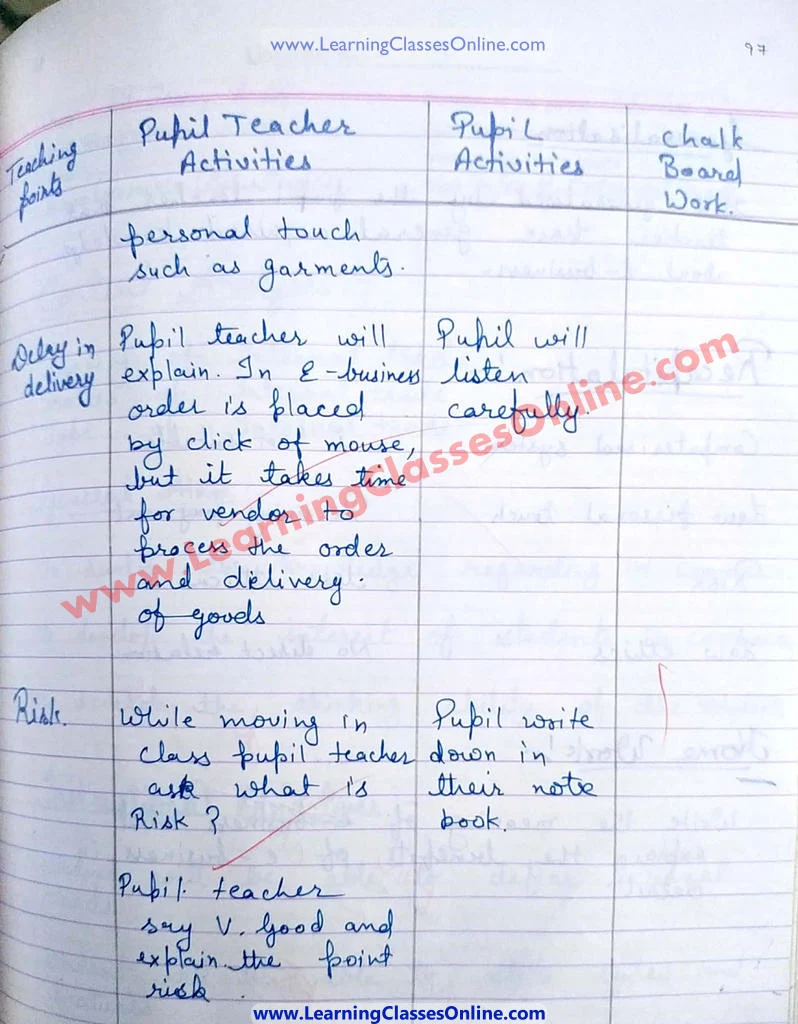 www.LearningClassesOnline.com
97
Teaching points
Pupil Teacher
Activities
Pupil
Activities
Chalk
Board
Work.
personal touch
such as garments.
Delay in
delivery
Pupil teacher will
explain. In E-business
order is placed
by click of mouse,
but it takes time
for vendor to
process the order
and delivery.
of goods
Pupil will
listen
carefully
www.LearningClassesOnline.com
Risk.
While moving in
class pupil teacher
ask what is
Risk?
Pupil write
down in
their note
book.
Pupil teacher
sry V. Good and
explain the point
risk
www.LearningClassesOnline.com